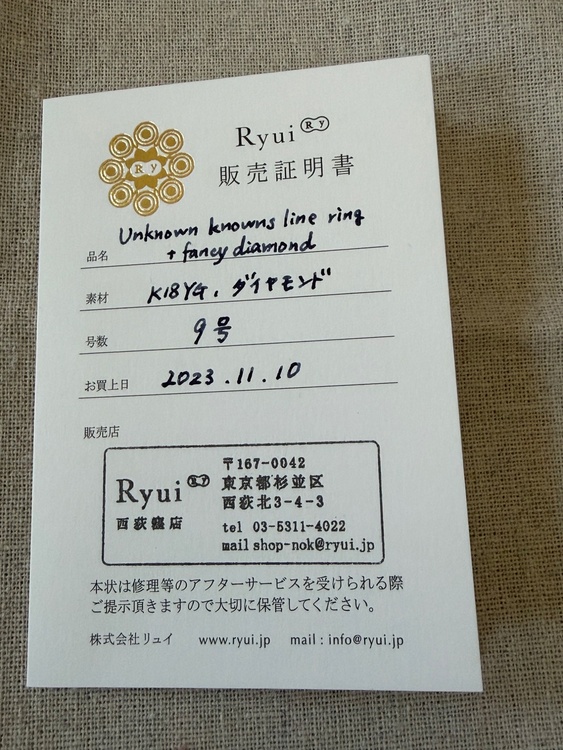 Ryui Ry
Ry
販売証明書
品名 Unknown knowns line ring
+ fancy diamond
素材 K18YG. ダイヤモンド
号数 9号
お買上日 2023.11.10
販売店
Ryui Ry
西荻窪店
〒167-0042
東京都杉並区
西荻北3-4-3
tel 03-5311-4022
mail shop-nok@ryui.jp
本状は修理等のアフターサービスを受けられる際
ご提示頂きますので大切に保管してください。
株式会社リュイ www.ryui.jp mail : info@ryui.jp